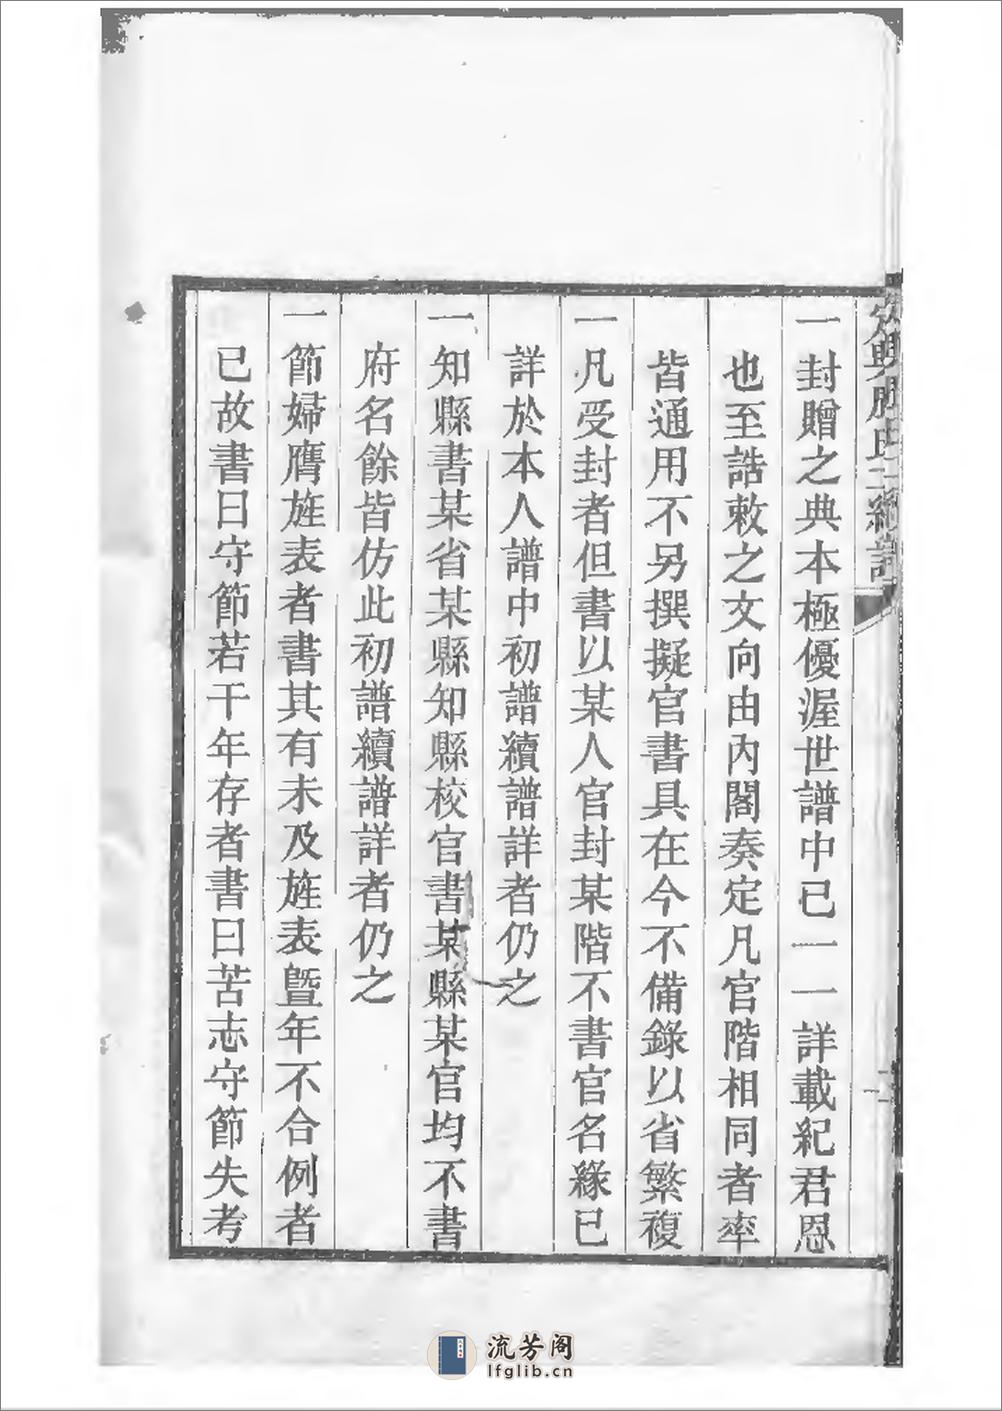 一封贈之典本極優渥世譜中已一一詳載紀君恩
也至誥敕之文向由內閣奏定凡官階相同者率
皆通用不另撰擬官書具在今不備錄以省繁複
一凡受封者但書以某人官封某階不書官名緣已
詳於本人譜中初譜續譜詳者仍之
一知縣書某省某縣知縣校官書某縣某官均不書
府名餘皆仿此初譜續譜詳者仍之
一節婦膺旌表者書其有未及旌表曁年不合例者
已故書曰守節若干年存者書曰苦志守節失考
流芳阁
lfglib.cn